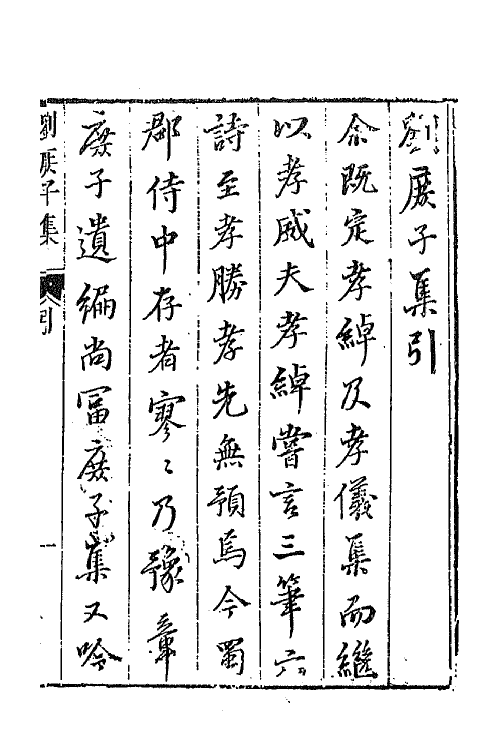 劉庶子集引
余既定孝綽及孝儀集而繼
以孝威夫孝綽嘗言三筆六
詩至孝勝孝先無預焉今蜀
郡侍中存者寥〻乃豫章
庶子遺編尚富庶子集又吟
劉庶子集
引
一